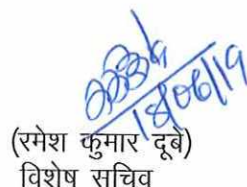 18/06/19
(रमेश कुमार दूबे)
विशेष सचिव